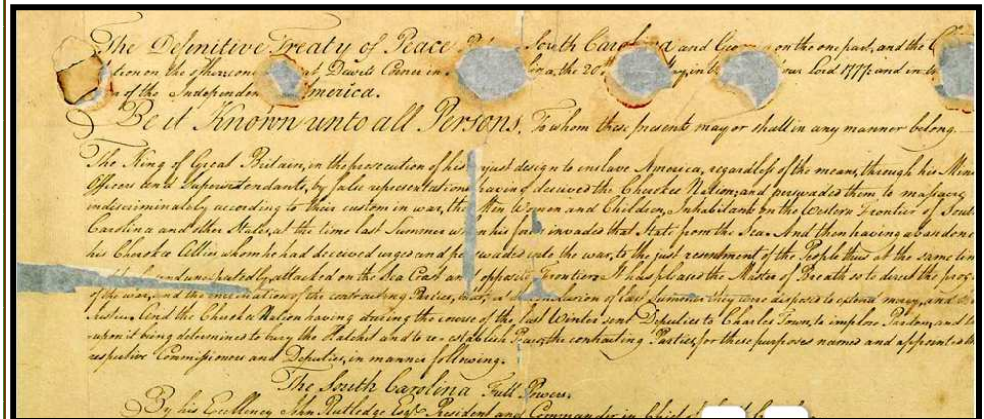 The Definitive Treaty of Peace South Carolina and on the one part, and the
on the other at Dewits Corner in the 20th in Lord 1777 and in
of the Independen America.
Be it Known unto all Persons. To whom these presents may or shall in any manner belong.
The King of Great Britain, in the prosecution of his unjust design to enslave America, regardless of the means, through his
Officers and Superintendants, by false representations having deceived the Cherokee Nation, and perswaded them to massacre
indiscriminately according to their custom in war, the Men Women and Children, Inhabitants on the Western Frontier of
Carolina and other States, at the time last Summer when his invaded that State from the Sea. And then having
his Cherokee Allies whom he had deceived urged and perswaded into the war, to the just resentment of the People thus at the same
attacked on the Sea Coast and opposite Frontiers. It has pleased the Master of Breath so to direct the
of the war, and the inclination of the contracting Parties, that, at conclusion of last Summer they were disposed to extend mercy, and
Justice. And the Cherokee Nation having during the course of the last Winter sent Deputies to Charles Town, to implore Pardon, and
upon it being determined to bury the Hatchet and to re-establish Peace, the contracting Parties, for these purposes named and appointed
respective Commissioners and Deputies, in manner following.
The South Carolina Full Powers.
By his Excellency John Rutledge Esqr. President and Commander in Chief of